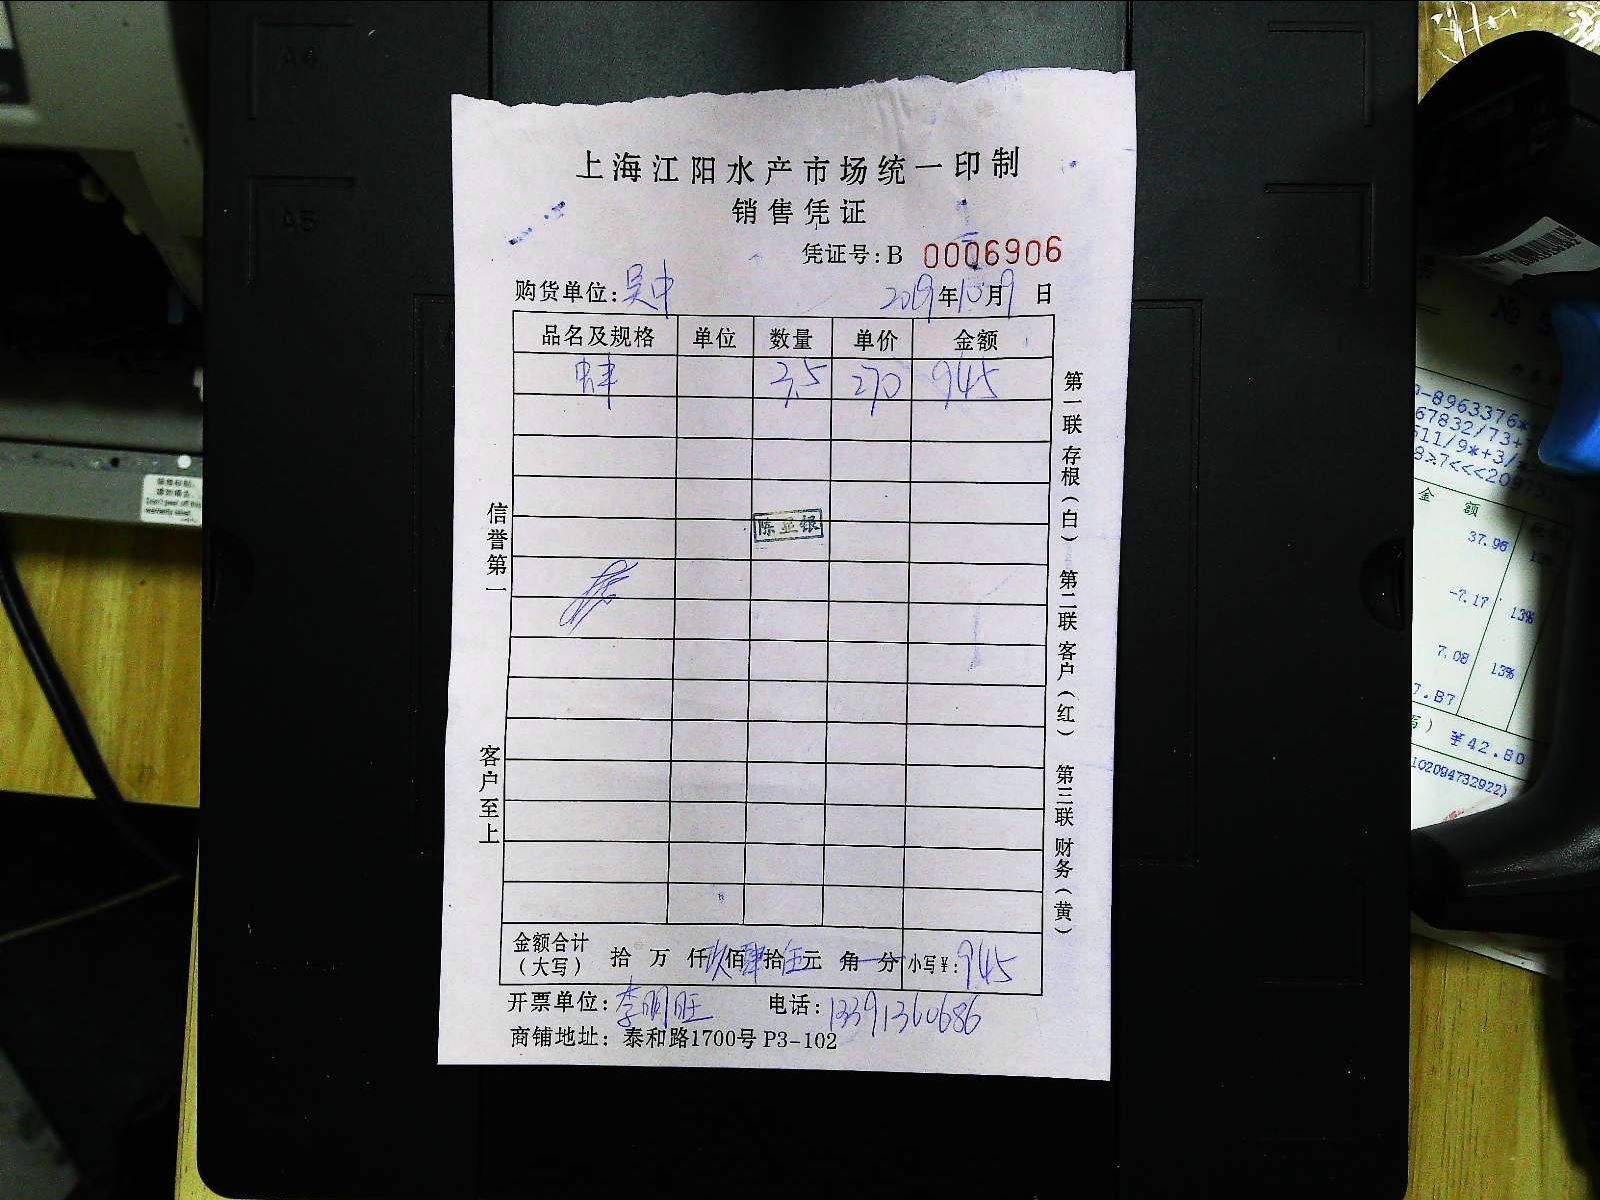 A4
A5
上海江阳水产市场统一印制
销售凭证
凭证号:B 0006906
购货单位:吴中 2019年10月9日
品名及规格 单位 数量 单价 金额
3.5 270 945
陈显银
信誉第一
客户至上
第一联 存根(白) 第二联 客户(红) 第三联 财务(黄)
金额合计(大写) 拾 万 仟玖佰肆拾伍元 角 分 小写¥:945
开票单位:李明旺 电话:13391360686
商铺地址:泰和路1700号 P3-102
金 额
37.96
-7.17 13%
7.08 13%
7.87
¥42.80
102094732922)